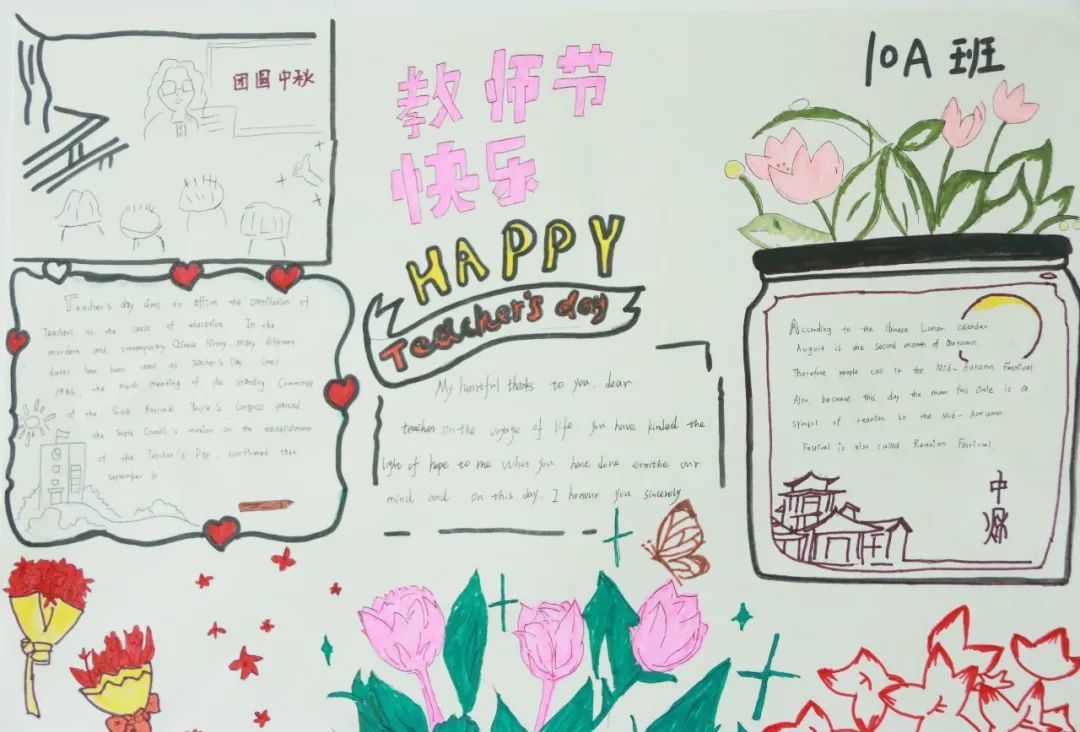 团圆中秋
教师节
快乐
HAPPY
Teacher's day
10A 班
Teacher's day aims to affirm the contribution of
Teachers to the cause of education. In the
mordern and contemporary Chinese history, many different
dates have been used as Teacher's Day. Until
1985, the ninth meeting of the standing Committee
of the Sixth National People's Congress passed
the State Council's motion on the establishment
of the Teacher's Day, confirmed that
september 10
My heartful thanks to you, dear
teacher on the voyage of life. you have kindled the
light of hope to me what you have done the our
mind and on this day. I honour you sincerely
According to the Chinese Lunar calendar
August is the second month of autumn.
Therefore people call it the Mid-Autumn Festival
Also because this day the moon full is a
symbol of reunion so the Mid-Autumn
Festival is also called Reunion Festival.
中秋